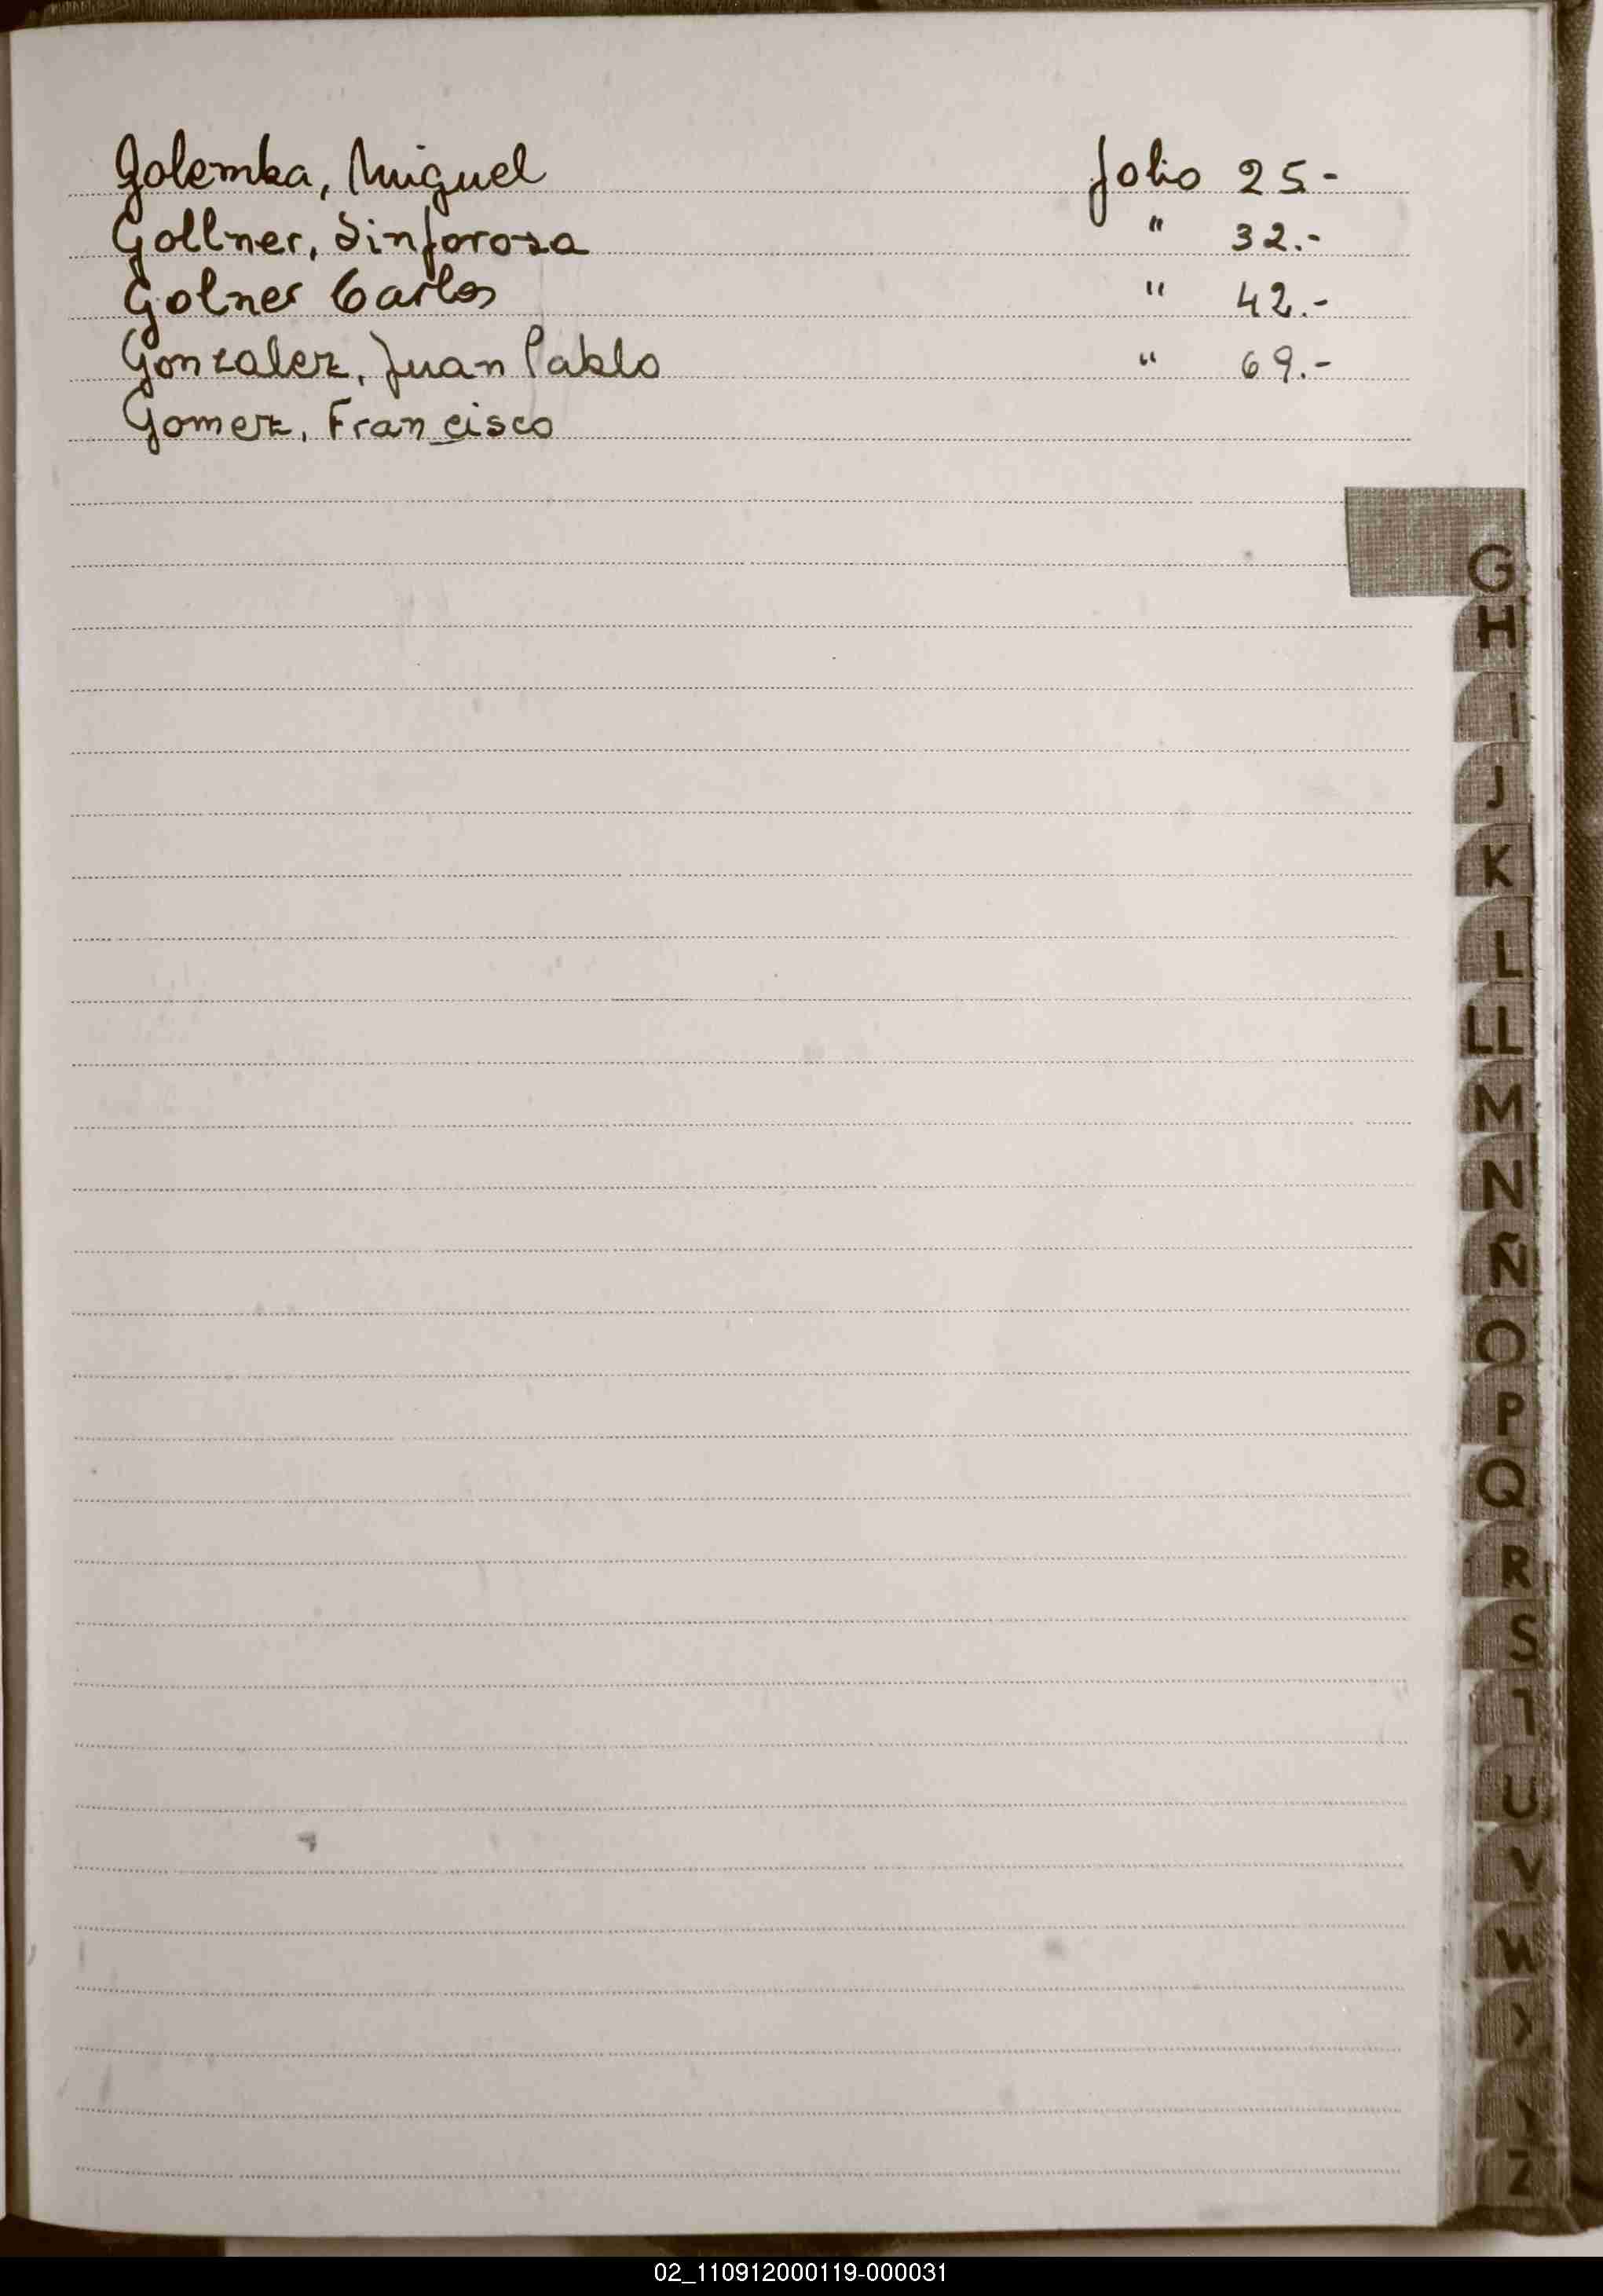 Golemba, Miguel folio 25-
Gollner, Sinforosa " 32.-
Golner Carlos " 42.-
Gonzalez, Juan Pablo " 69.-
Gomez, Francisco
G
H
I
J
K
L
LL
M
N
Ñ
O
P
Q
R
S
T
U
V
W
Z
02_110912000119-000031